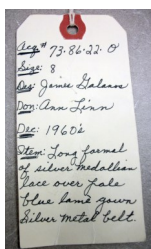 Acq# 73.86.22. O
Size: 8
Des: James Galanos
Don: Ann Linn
Dec: 1960's
Item: Long formal
of silver medallion
lace over pale
blue lamé gown
Silver metal belt.